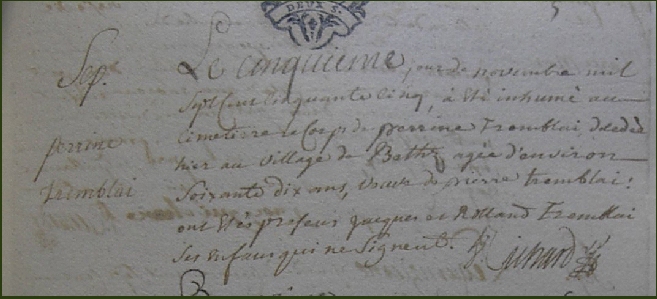 DEUX S.
Sep.
perrine
tremblai
Le cinquieme jour de novembre mil
sept cent cinquante cinq, a été inhumé au
cimetiere le Corps de perrine Tremblai, décédée
hier au village de agée d'environ
Soixante dix ans, de pierre tremblai:
ont étés presens jacques et Rolland Tremblai
ses enfans qui ne signent.